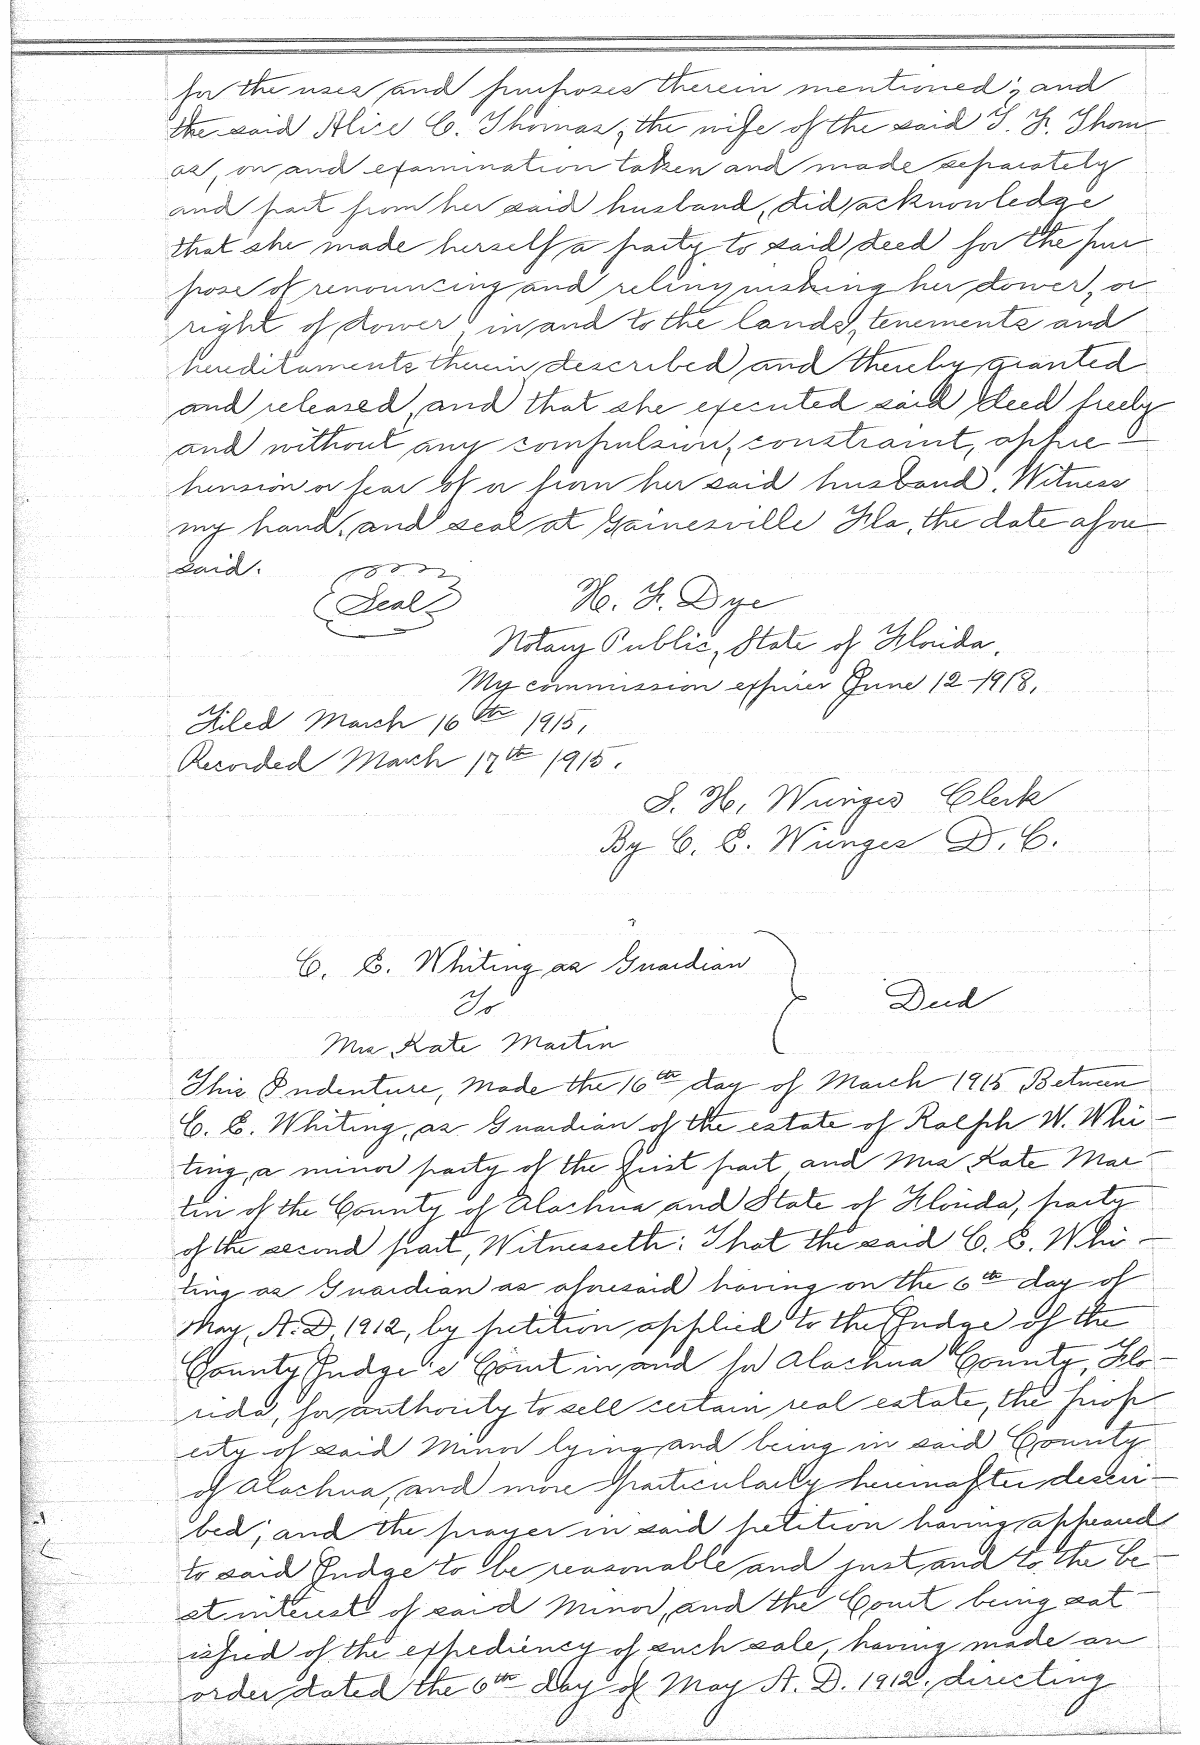 for the uses and purposes therein mentioned; and
the said Alice C. Thomas, the wife of the said T. F. Thom
as, on and examination taken and made separately
and part from her said husband, did acknowledge
that she made herself a party to said deed for the pur
pose of renouncing and relinquishing her dower, or
right of dower, in and to the lands, tenements and
hereditaments therein described and thereby granted
and released, and that she executed said deed freely
and without any compulsion, constraint, appre-
hension or fear of or from her said husband. Witness
my hand, and seal at Gainesville Fla, the date afore-
said.
Seal
H. F. Dye
Notary Public, State of Florida.
My commission expires June 12-1918.
Filed March 16th 1915.
Recorded March 17th 1915.
S. H. Wienges Clerk
By C. E. Wienges D. C.
C. E. Whiting as Guardian
To
Mrs Kate Martin
Deed
This Indenture, Made the 16th day of March 1915 Between
C. E. Whiting, as Guardian of the estate of Ralph W. Whi-
ting, a minor party of the first part and Mrs Kate Mar-
tin of the County of Alachua and State of Florida, party
of the second part, Witnesseth: That the said C. E. Whi-
ting as Guardian as aforesaid having on the 6th day of
May, A.D. 1912, by petition applied to the Judge of the
County Judge's Court in and for Alachua County, Flo-
rida, for authority to sell certain real estate, the prop
erty of said Minor lying and being in said County
of Alachua, and more particularly hereinafter descri-
bed; and the prayer in said petition having appeared
to said Judge to be reasonable and just and to the be-
st interest of said Minor, and the Court being sat-
isfied of the expediency of such sale, having made an
order dated the 6th day of May A. D. 1912. directing